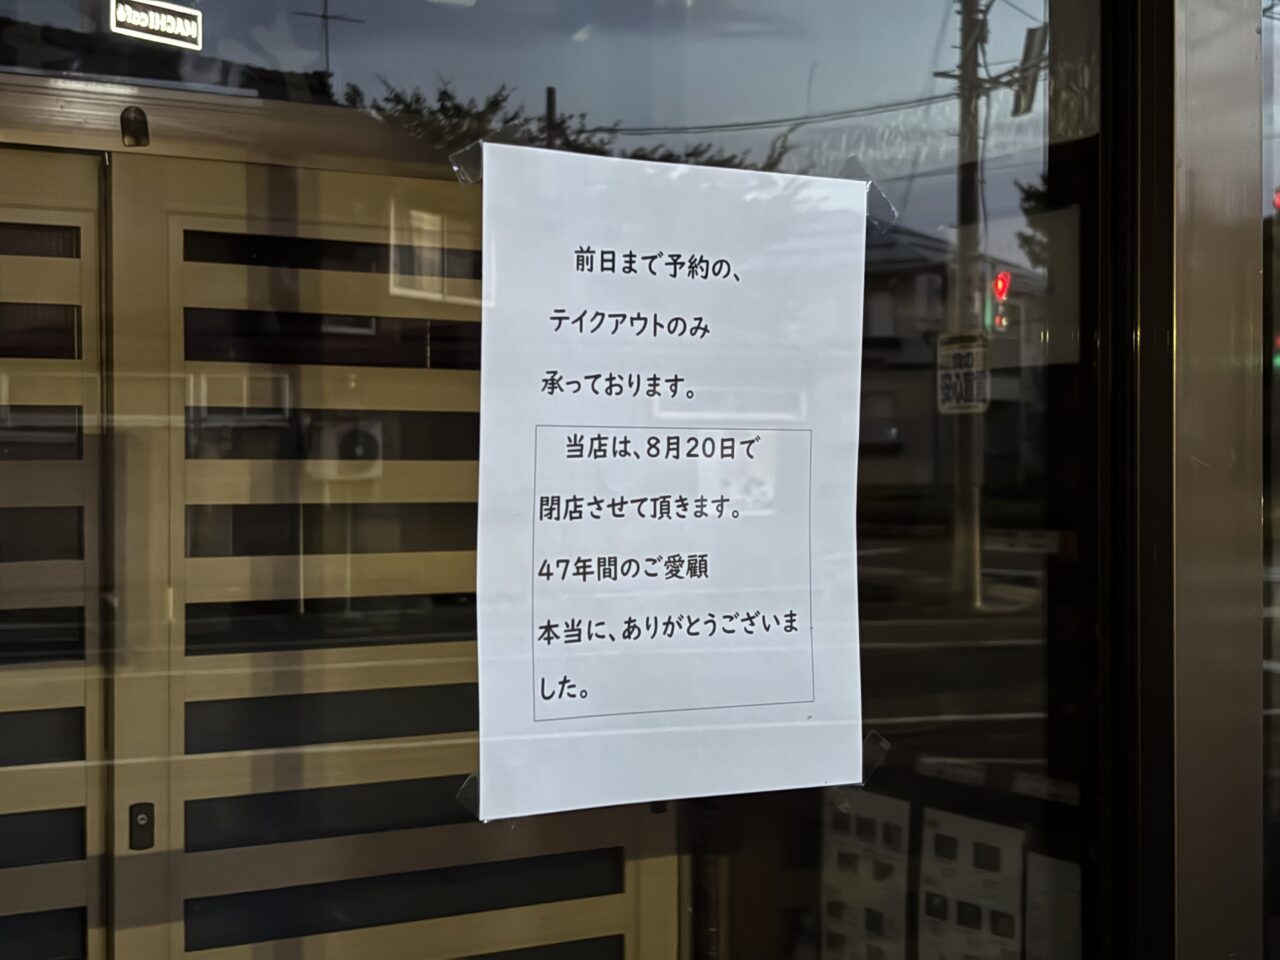 MACHI café
前日まで予約の、
テイクアウトのみ
承っております。
当店は、8月20日で
閉店させて頂きます。
47年間のご愛顧
本当に、ありがとうございま
した。